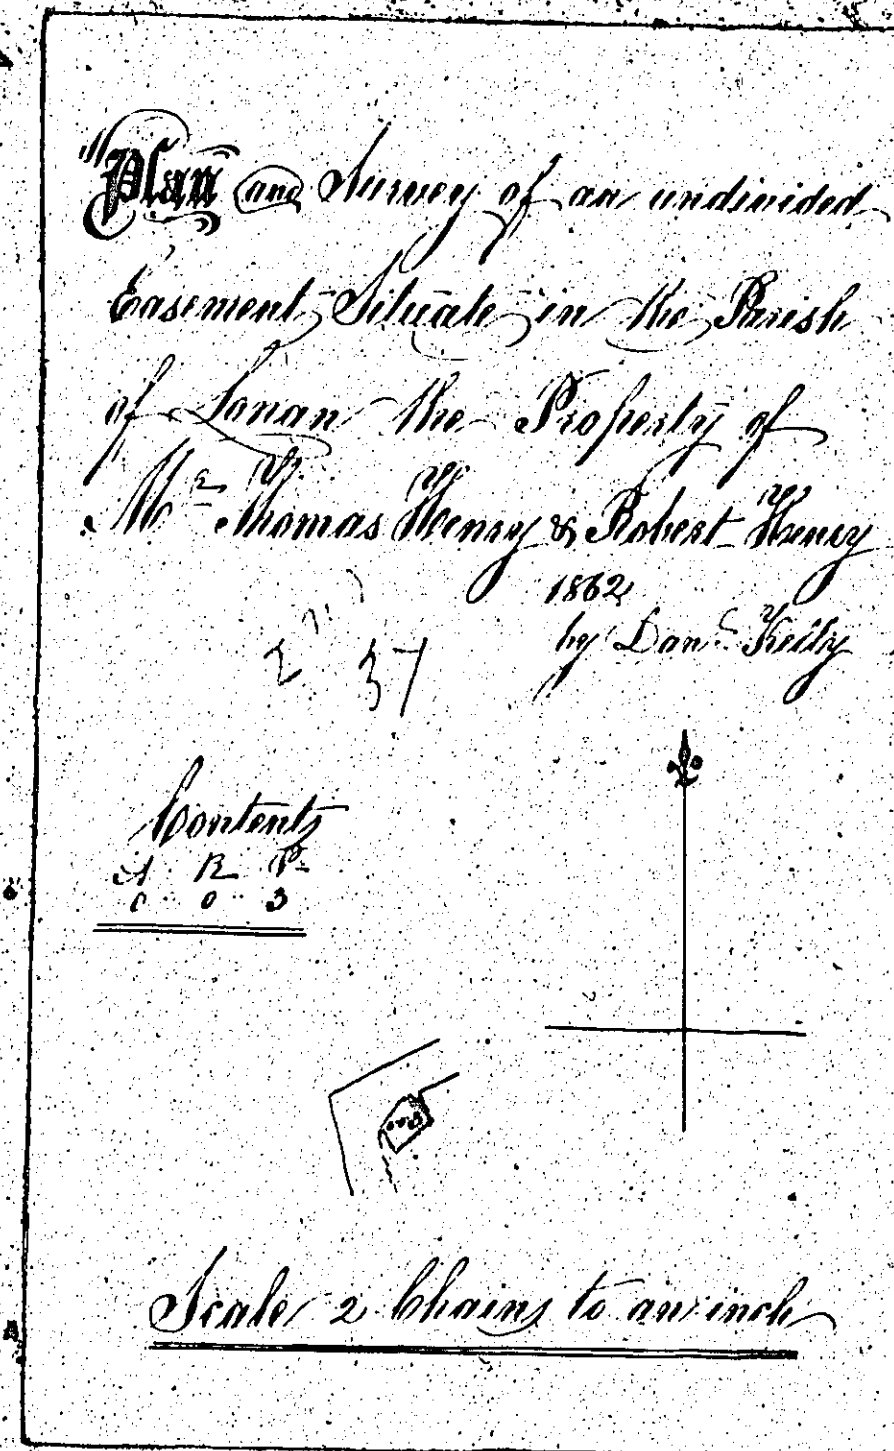 Plan and Survey of an undivided
Easement Situate in the Parish
of Lonan the Property of
Mr Thomas Henry & Robert Henry
1862
by Danl
37
Contents
A R P
0 0 3
Scale 2 Chains to an inch